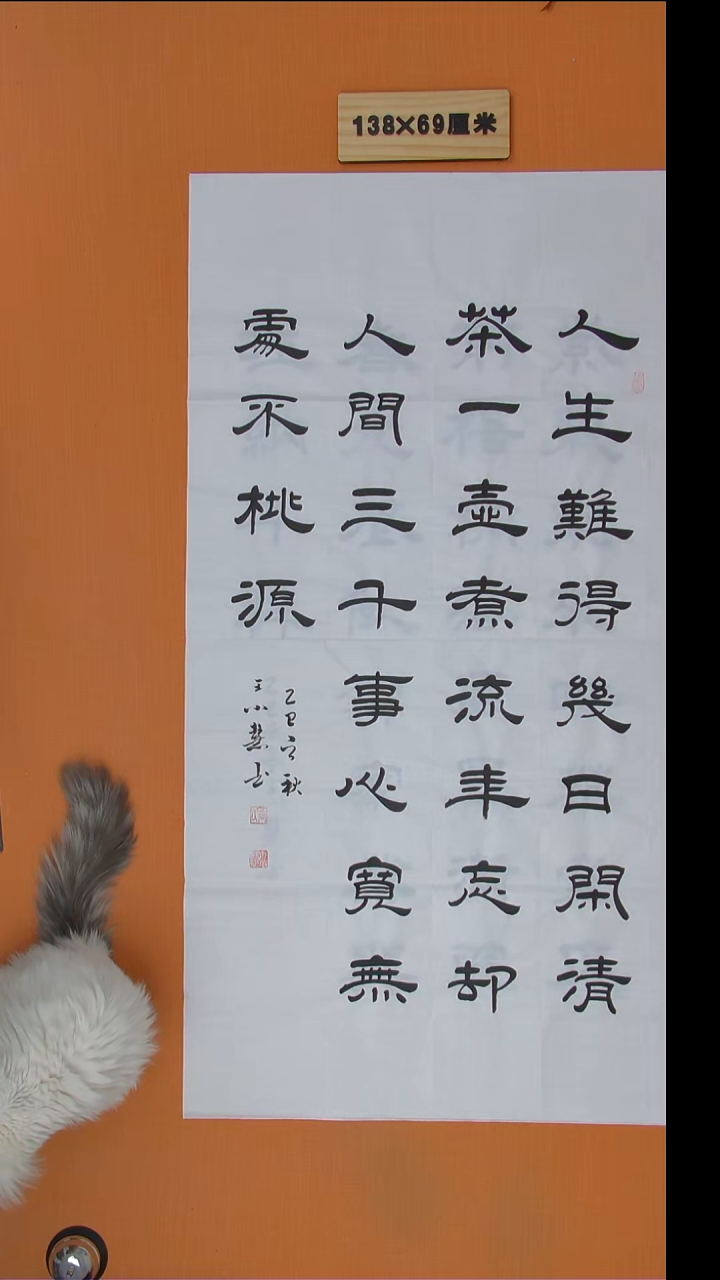 138×69厘米
人生難得幾日閑清
茶一壺煮流年忘却
人間三千事心寬無
處不桃源
乙巳之秋
王小書